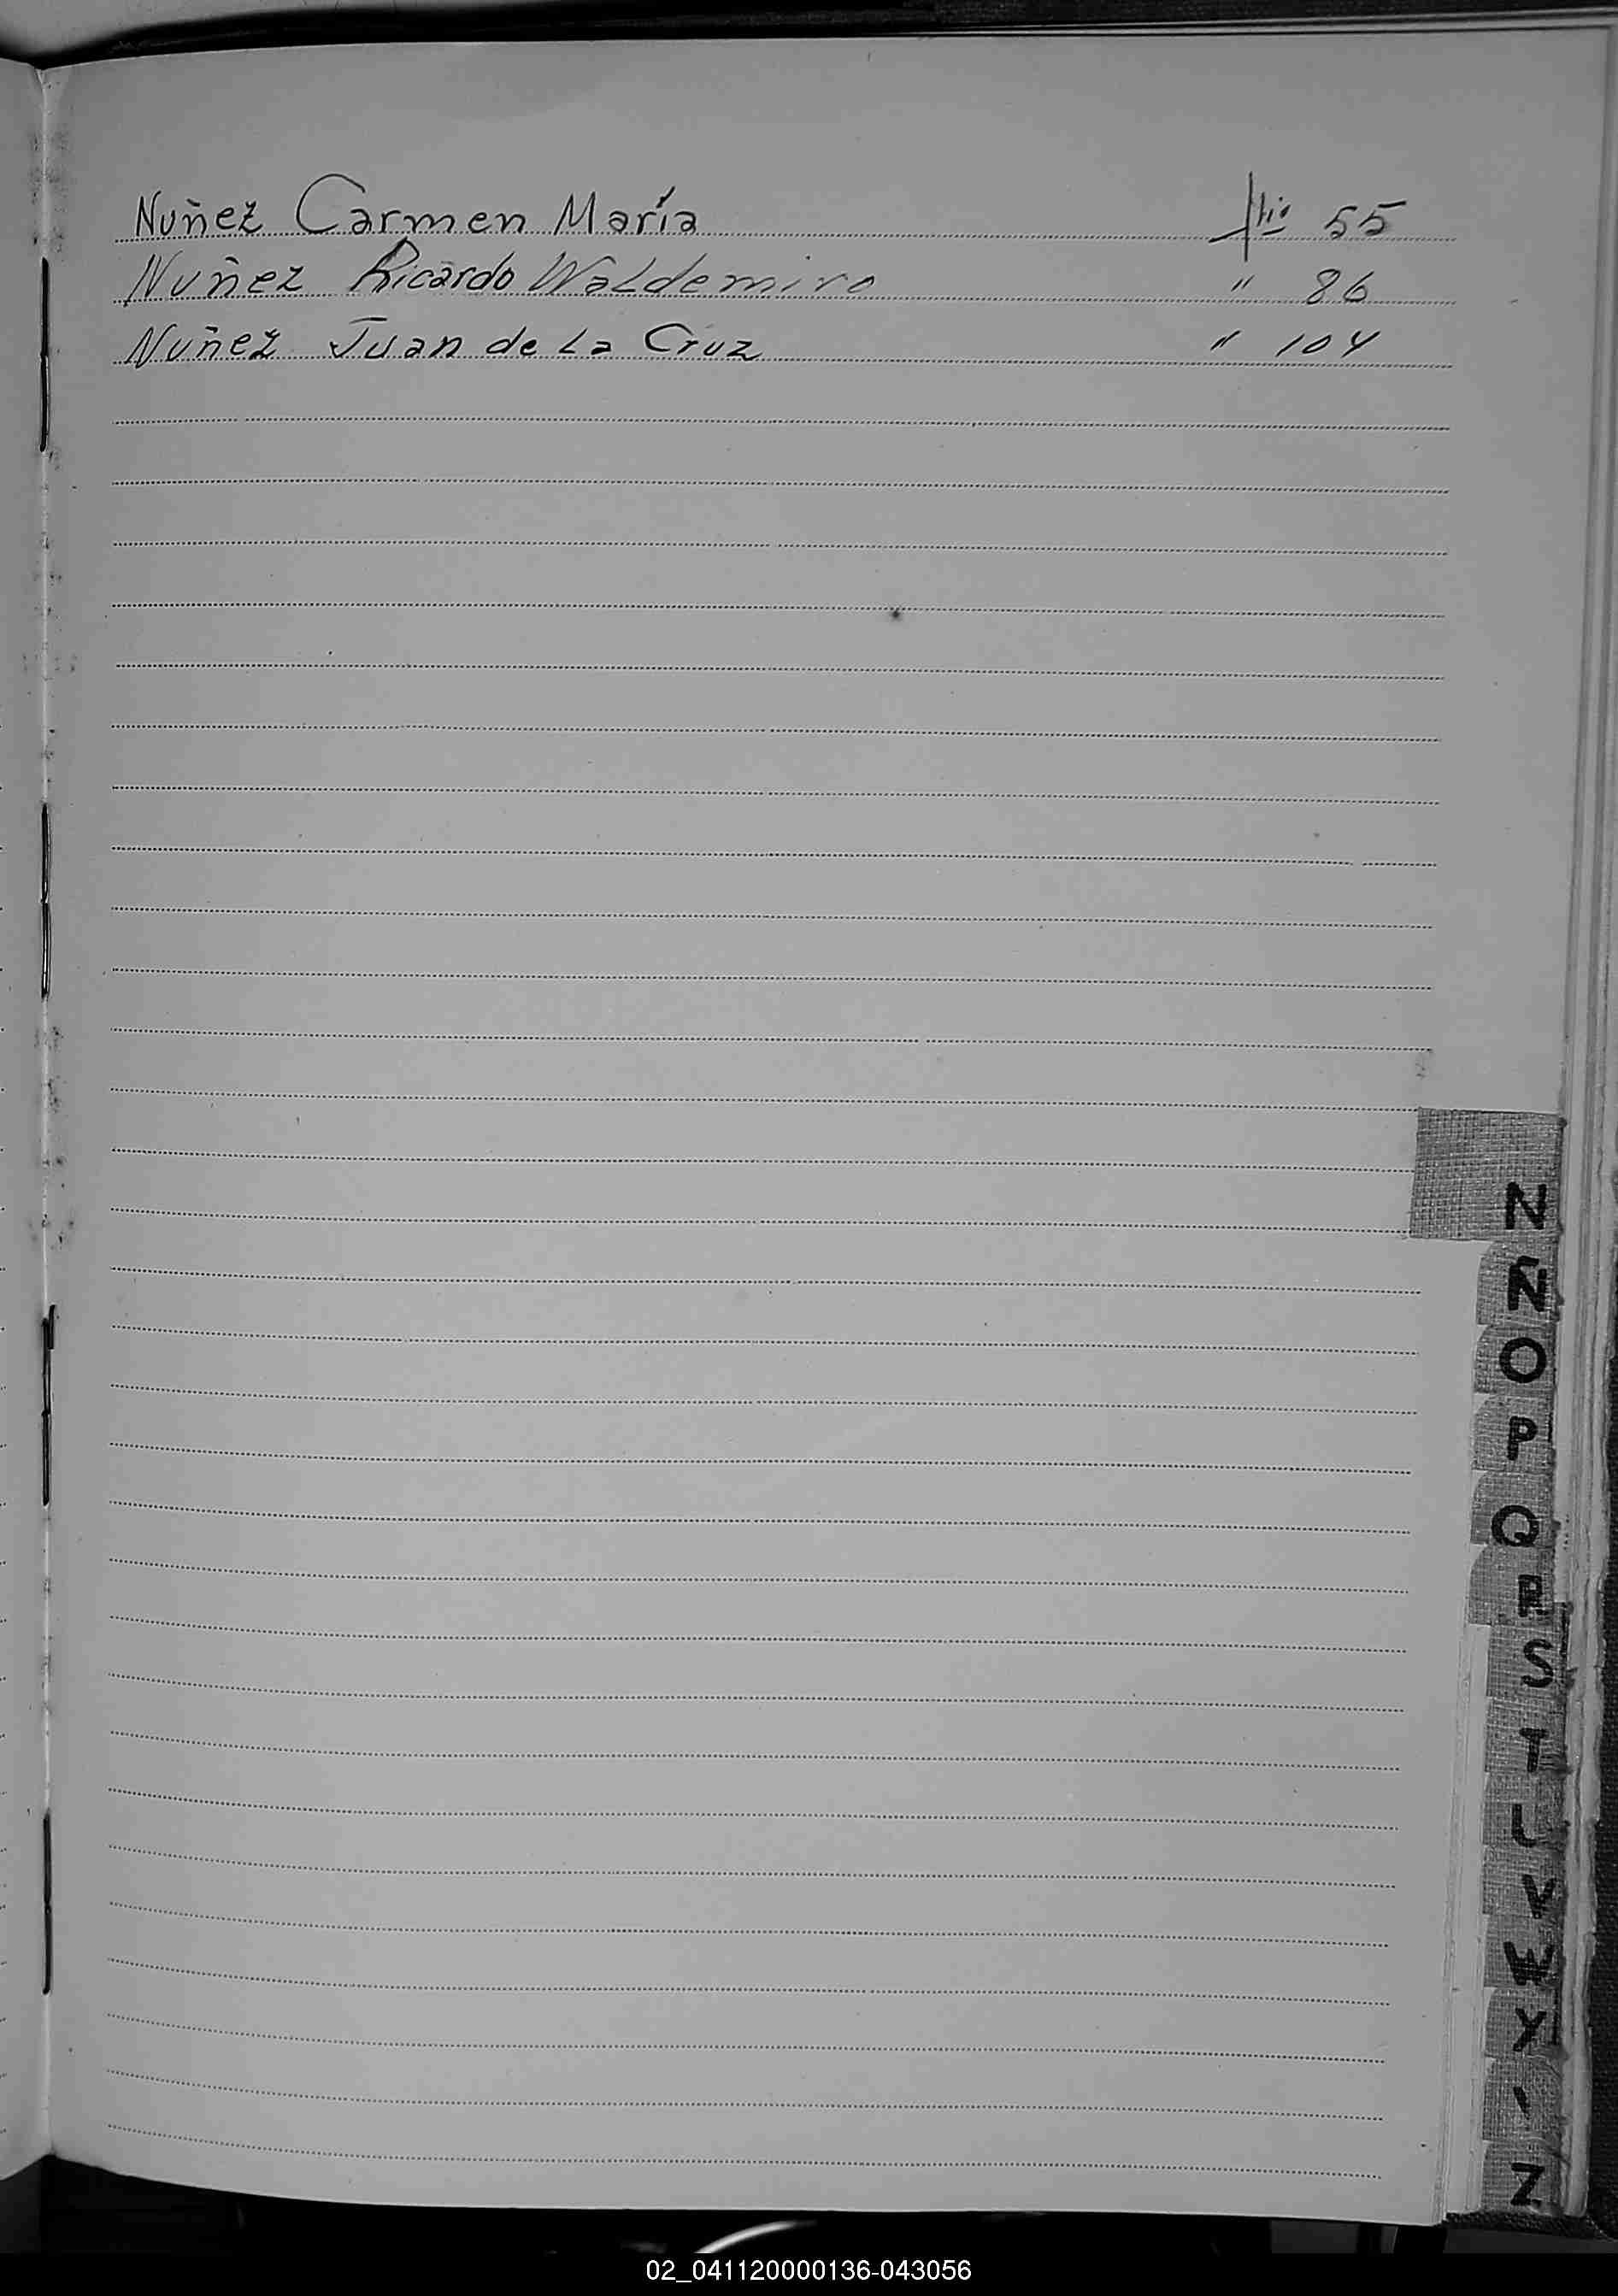 Nuñez Carmen María flio 55
Nuñez Ricardo Waldemiro " 86
Nuñez Juan de La Cruz " 104
N
Ñ
O
P
Q
R
S
T
V
W
X
Z
02_041120000136-043056